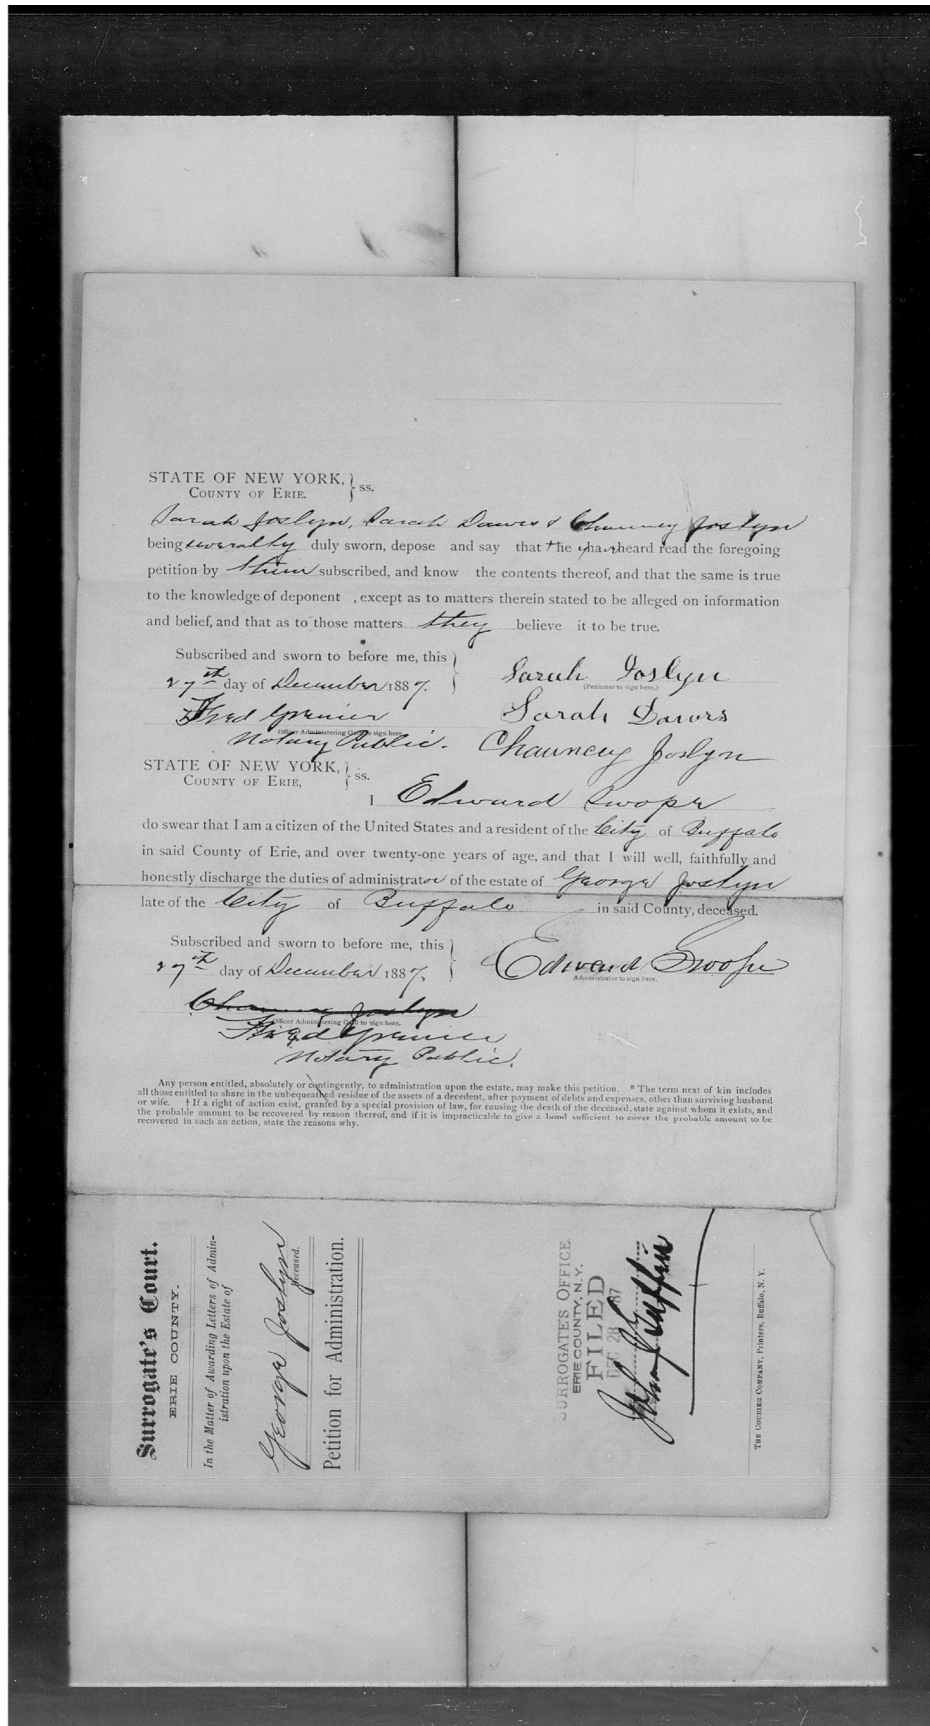 STATE OF NEW YORK, } ss.
COUNTY OF ERIE.
Sarah Joslyn, Sarah Dawrs & Chauncey Joslyn
being severalty duly sworn, depose and say that they have heard read the foregoing
petition by them subscribed, and know the contents thereof, and that the same is true
to the knowledge of deponent , except as to matters therein stated to be alleged on information
and belief, and that as to those matters they believe it to be true.
Subscribed and sworn to before me, this }
27th day of December 1887.
Sarah Joslyn
(Petitioner to sign here.)
Fred Grenier
Officer Administering Oath to sign here.
Notary Public.
Sarah Dawrs
Chauncey Joslyn
STATE OF NEW YORK, } ss.
COUNTY OF ERIE,
I Edward Swope
do swear that I am a citizen of the United States and a resident of the City of Buffalo
in said County of Erie, and over twenty-one years of age, and that I will well, faithfully and
honestly discharge the duties of administrator of the estate of George Joslyn
late of the City of Buffalo in said County, deceased.
Subscribed and sworn to before me, this }
27th day of December 1887.
Edward Swope
Administrator to sign here.
Chauncey Joslyn
Officer Administering Oath to sign here.
Fred Grenier
Notary Public.
Any person entitled, absolutely or contingently, to administration upon the estate, may make this petition. * The term next of kin includes
all those entitled to share in the unbequeathed residue of the assets of a decedent, after payment of debts and expenses, other than surviving husband
or wife. † If a right of action exist, granted by a special provision of law, for causing the death of the deceased, state against whom it exists, and
the probable amount to be recovered by reason thereof, and if it is impracticable to give a bond sufficient to cover the probable amount to be
recovered in such an action, state the reasons why.
Surrogate's Court.
ERIE COUNTY.
In the Matter of Awarding Letters of Admin-
istration upon the Estate of
George Joslyn
Deceased.
Petition for Administration.
SURROGATES OFFICE
ERIE COUNTY, N.Y.
FILED
DEC 28 87
THE COURIER COMPANY, Printers, Buffalo, N. Y.